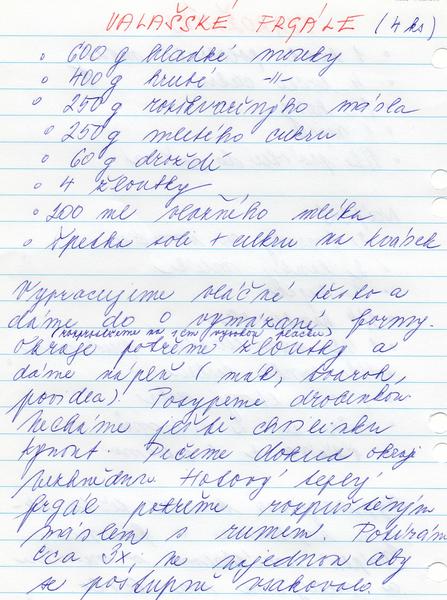 VALAŠSKÉ FRGÁLE (4 ks)
600 g hladké mouky
400 g hrubé -"-
250 g rozškvařeného másla
250 g mletého cukru
60 g droždí
4 žloutky
200 ml vlažného mléka
špetka soli + cukru na kvásek
Vypracujeme vláčné těsto a
dáme do O vymázané formy.
(rozprostřeme na 1 cm vysokou placku)
Okraje potřeme žloutky a
dáme náplň (mák, tvaroh,
povidla). Posypeme drobenkou
Necháme ještě chvilinku
kynout. Pečeme dokud okraj
nezhnědne. Hotový teplý
frgál potřeme rozpuštěným
máslem s rumem. Potírám
cca 3x, ne najednou aby
se postupně vsakovalo.